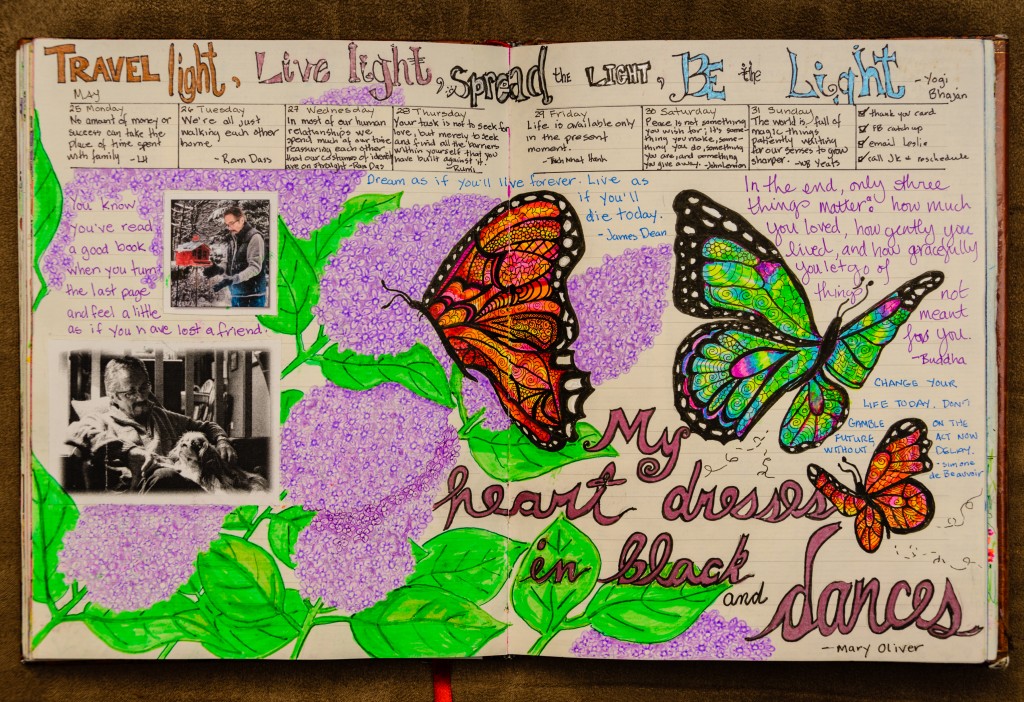 TRAVEL light, Live light, Spread the LIGHT, BE the Light
- Yogi
Bhajan
MAY
25 Monday
No amount of money or
success can take the
place of time spent
with family - LH
26 Tuesday
We're all just
walking each other
home.
- Ram Dass
27 Wednesday
In most of our human
relationships we
spend much of our time
reassuring each other
that our costumes of identity
are on straight - Ram Dass
28 Thursday
Your task is not to seek for
love, but merely to seek
and find all the barriers
within yourself that you
have built against it.
- Rumi
29 Friday
Life is available only
in the present
moment.
- Thich Nhat Hanh
30 Saturday
Peace is not something
you wish for; it's some-
thing you make, some-
thing you do, something
you are, and something
you give away. - John Lennon
31 Sunday
The world is full of
magic things
patiently waiting
for our senses to grow
sharper. - WB Yeats
thank you card
FB catch up
email Leslie
call Jk & reschedule
You know
you've read
a good book
when you turn
the last page
and feel a little
as if you have lost a friend.
Dream as if you'll live forever. Live as
if you'll
die today.
- James Dean
In the end, only three
things matter: how much
you loved, how gently you
lived, and how gracefully
you let go of
things not
meant
for you.
- Buddha
CHANGE YOUR
LIFE TODAY. DON'T
GAMBLE ON THE
FUTURE ACT NOW
WITHOUT DELAY.
- Simone
de Beauvoir
My
heart dresses
in black
and dances
- MARY OLIVER